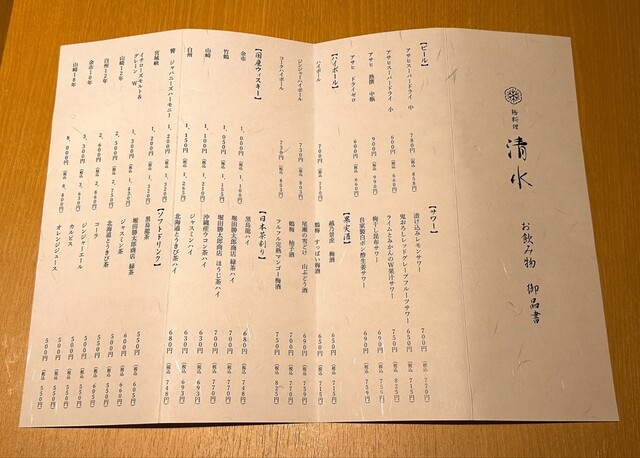 清水
お飲み物 御品書
【ビール】
アサヒスーパードライ 中
アサヒスーパードライ 小 600円
アサヒ 熟撰 中瓶 900円(税込 990円)
アサヒ ドライゼロ 600円(税込 660円)
【ハイボール】
ハイボール 700円(税込 770円)
ジンジャーハイボール 730円(税込 803円)
コークハイボール 730円(税込 803円)
【国産ウィスキー】
余市 1,000円(税込 1,100円)
竹鶴 1,050円(税込 1,155円)
山崎 1,100円(税込 1,210円)
白州 1,150円(税込 1,265円)
響 ジャパニーズハーモニー 1,200円(税込 1,320円)
宮城峡 1,200円(税込 1,320円)
イチローズモルト&グレーン W 1,300円(税込 1,430円)
山崎12年 2,500円(税込 2,750円)
白州12年 2,600円(税込 2,860円)
余市10年
山崎18年 8,000円(税込 8,800円)
【サワー】
漬け込みレモンサワー 700円(税込 770円)
鬼おろしレッドグレープフルーツサワー 650円(税込 715円)
ライムとみかんのW果汁サワー 750円(税込 825円)
梅干し昆布サワー 690円(税込 759円)
自家製白ポン酢生姜サワー 690円(税込 759円)
【果実酒】
越乃景虎 梅酒 650円(税込 715円)
鶴梅 すっぱい梅酒 650円(税込 715円)
尾瀬の雪どけ 山ぶどう酒 690円(税込 759円)
鶴梅 柚子酒 700円(税込 770円)
フルフル完熟マンゴー梅酒 750円(税込 825円)
【日本茶割り】
黒烏龍ハイ 680円(税込 748円)
堀田勝太郎商店 緑茶ハイ 700円(税込 770円)
堀田勝太郎商店 ほうじ茶ハイ 700円(税込 770円)
沖縄産ウコン茶ハイ 630円(税込 693円)
ジャスミンハイ 630円(税込 693円)
北海道とうきび茶ハイ 680円(税込 748円)
【ソフトドリンク】
黒烏龍茶 550円(税込 605円)
堀田勝太郎商店 緑茶 600円(税込 660円)
ジャスミン茶 500円(税込 550円)
北海道とうきび茶 550円(税込 605円)
コーラ 500円(税込 550円)
ジンジャーエール 500円(税込 550円)
カルピス 500円(税込 550円)
オレンジジュース 500円(税込 550円)